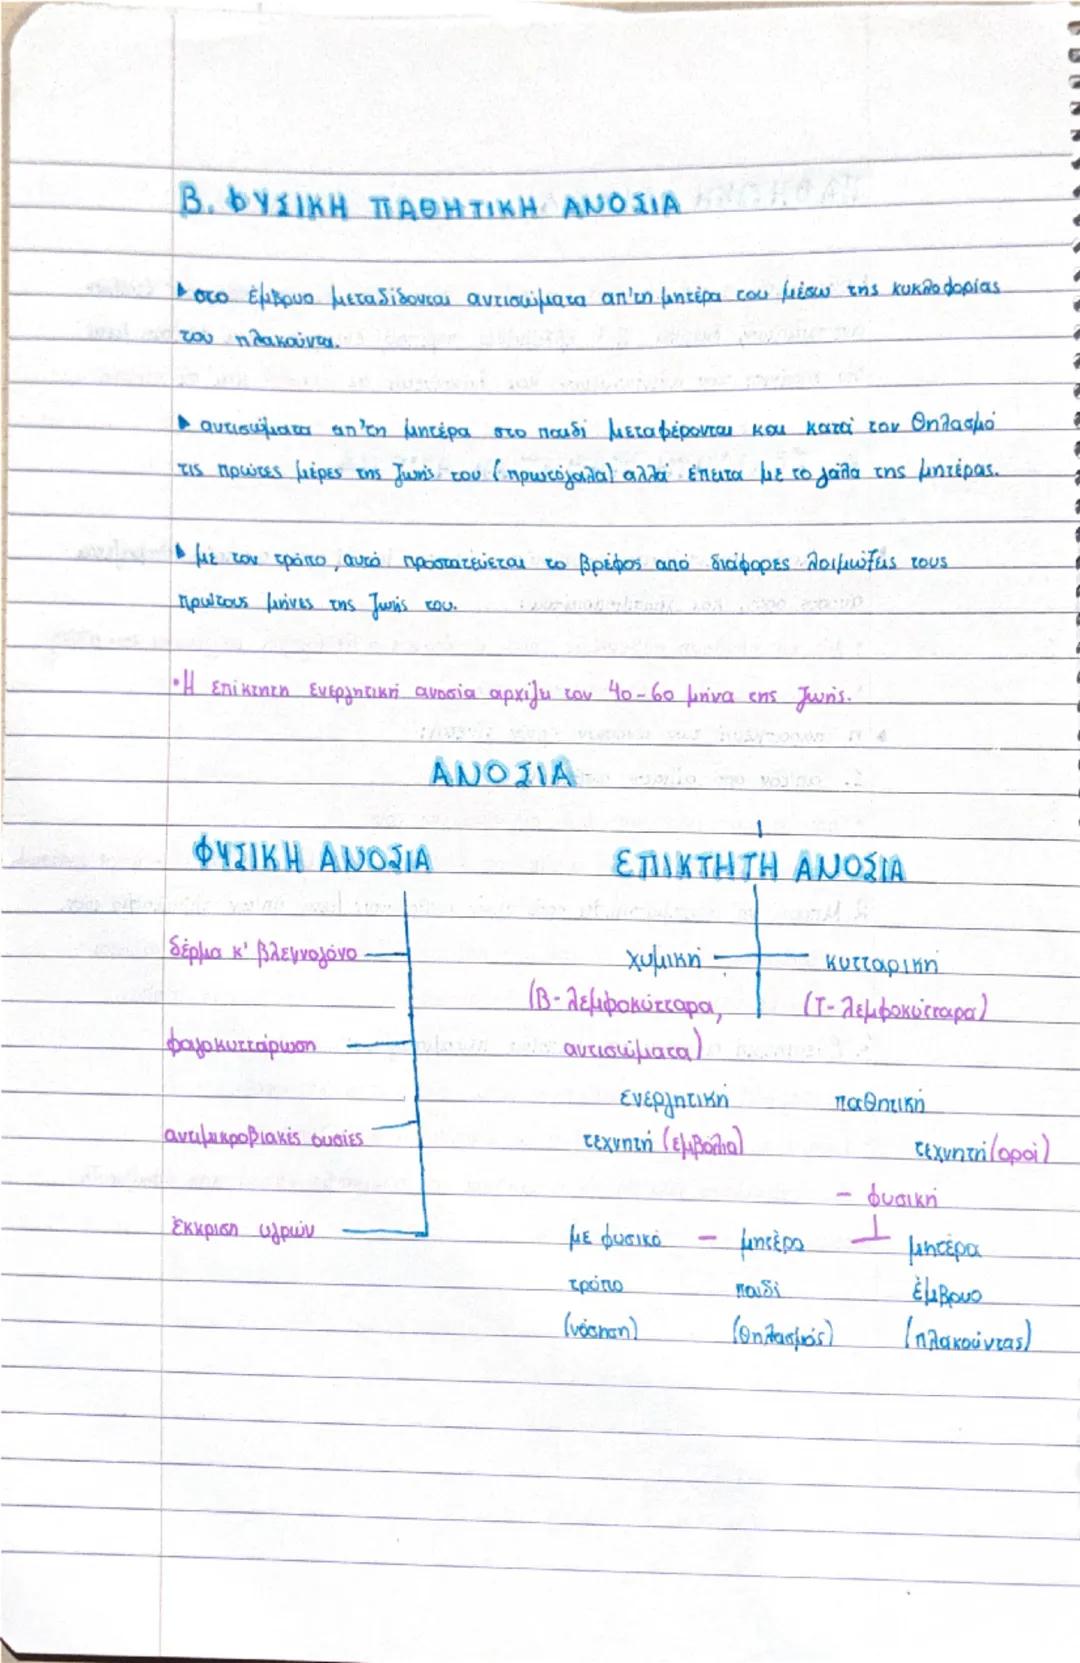 Β. ΦΥΣΙΚΗ ΠΑΘΗΤΙΚΗ ΑΝΟΣΙΑ
▸ στο έμβρυο μεταδίδονται αντισώματα απ'τη μητέρα του μέσω της κυκλοφορίας
του πλακούντα.
▸ αντισώματα απ'τη μητέρα στο παιδί μεταφέρονται και κατά τον θηλασμό
τις πρώτες μέρες της ζωής του (πρωτόγαλα) αλλά έπειτα με το γάλα της μητέρας.
▸ με τον τρόπο, αυτό προστατεύεται το βρέφος από διάφορες λοιμώξεις τους
πρώτους μήνες της ζωής του.
•Η επίκτητη ενεργητική ανοσία αρχίζει τον 4ο-6ο μήνα της ζωής.
ΑΝΟΣΙΑ
ΦΥΣΙΚΗ ΑΝΟΣΙΑ ΕΠΙΚΤΗΤΗ ΑΝΟΣΙΑ
δέρμα κ' βλεννογόνο χυμική κυτταρική
(Β-λεμφοκύτταρα, (Τ-λεμφοκύτταρα)
φαγοκυττάρωση αντισώματα)
ενεργητική παθητική
αντιμικροβιακές ουσίες τεχνητή (εμβόλια) τεχνητή (οροί)
- φυσική
έκκριση υγρών με φυσικό - μητέρα μητέρα
τρόπο παιδί έμβρυο
(νόσηση) (θηλασμός) (πλακούντας)